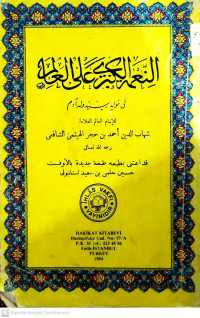 النعمة الكبرى على العالم
في مولد سيد ولد آدم
للإمام العالم العلامة
شهاب الدين أحمد بن حجر الهيتمي الشافعي
رحمه الله تعالى
قد اعتنى بطبعه طبعة جديدة بالأوفست
حسين حلمي بن سعيد استانبولي
IHLÂS VAKFI
YAYINIDIR
HAKİKAT KİTABEVİ
Darüşşefaka Cad. No: 57/A
P.K. 35 tel.: 523 45 56
Fatih-İSTANBUL
TURKEY